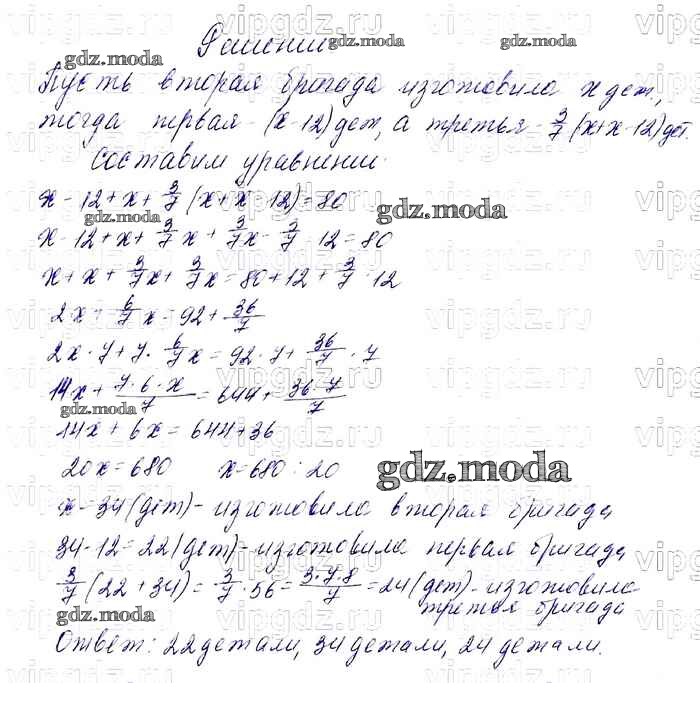 Решение
Пусть вторая бригада изготовила x дет.,
тогда первая - (x-12) дет, а третья - 3/7 (x+x-12) дет.
Составим уравнение:
x - 12 + x + 3/7 (x+x-12) = 80
x - 12 + x + 3/7 x + 3/7 x - 3/7 · 12 = 80
x + x + 3/7 x + 3/7 x = 80 + 12 + 3/7 · 12
2x + 6/7 x = 92 + 36/7
2x · 7 + 7 · 6/7 x = 92 · 7 + 36/7 · 7
14x + 7·6·x/7 = 644 + 36·7/7
14x + 6x = 644 + 36
20x = 680 x = 680 : 20
x = 34 (дет) - изготовила вторая бригада
34 - 12 = 22 (дет) - изготовила первая бригада
3/7 (22 + 34) = 3/7 · 56 = 3·7·8/7 = 24 (дет) - изготовила
третья бригада
Ответ: 22 детали, 34 детали, 24 детали.
gdz.moda
vipgdz.ru